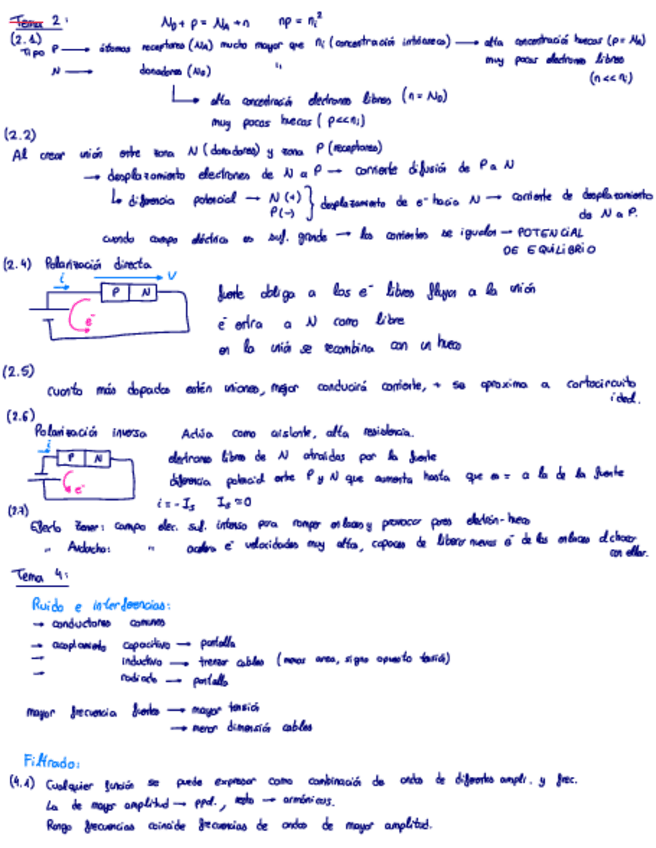 Tema 2: N_D + p = N_A + n np = n_i²
(2.1)
Tipo P → átomos receptores (N_A) mucho mayor que n_i (concentración intrínseca) → alta concentración huecos (p = N_A)
muy pocos electrones libres
(n << n_i)
N → donadores (N_D) "
↳ alta concentración electrones libres (n = N_D)
muy pocos huecos (p << n_i)
(2.2)
Al crear unión entre zona N (donadores) y zona P (receptores)
→ desplazamiento electrones de N a P → corriente difusión de P a N
↳ diferencia potencial → N (+) P (-) } desplazamiento de e⁻ hacia N → corriente de desplazamiento
de N a P.
cuando campo eléctrico es suf. grande → las corrientes se igualan → POTENCIAL
DE EQUILIBRIO
(2.4) Polarización directa
i V
P N
e⁻
fuente obliga a los e⁻ libres fluyan a la unión
e⁻ entra a N como libre
en la unión se recombina con un hueco
(2.5)
cuanto más dopados estén uniones, mejor conducirá corriente, + se aproxima a cortocircuito
ideal.
(2.6)
Polarización inversa Actúa como aislante, alta resistencia.
i
P N
e⁻
electrones libres de N atraídos por la fuente
diferencia potencial entre P y N que aumenta hasta que es = a la de la fuente
i = -I_s I_s ≈ 0
(2.7)
Efecto Zener: campo elec. suf. intenso para romper enlaces y provocar pares electrón-hueco
" Avalancha: " acelera e⁻ velocidades muy altas, capaces de liberar nuevos e⁻ de los enlaces al chocar
con ellos.
Tema 4:
Ruido e interferencias:
→ conductores comunes
→ acoplamiento capacitivo → pantalla
→ inductivo → trenzar cables (menos area, signo opuesto tensión)
→ radiado → pantalla
mayor frecuencia fuentes → mayor tensión
→ menor dimensión cables
Filtrado:
(4.1) Cualquier función se puede expresar como combinación de ondas de diferentes ampli. y frec.
La de mayor amplitud → ppal, resto → armónicos.
Rango frecuencias coincide frecuencias de ondas de mayor amplitud.